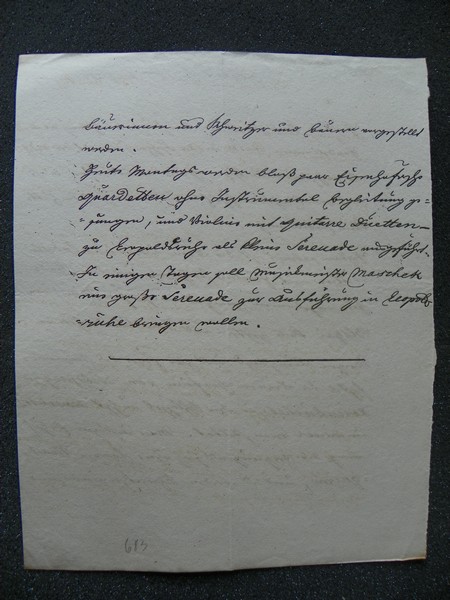 bäuerinnen und Schweitzer und Bauern vorgestellt
werden.
Heute Montags werden bloß paar Eisenhofersche
Quardetten ohne Instrumental Begleitung ge-
-sungen, und Violin mit Guitarre Duetten-
zu Leopoldsruhe als kleine Serenade aufgeführt.
In einigen Tagen soll Musikmeister Maschek
eine große Serenade zur Aufführung in Leopolds-
-ruhe bringen wollen.
683